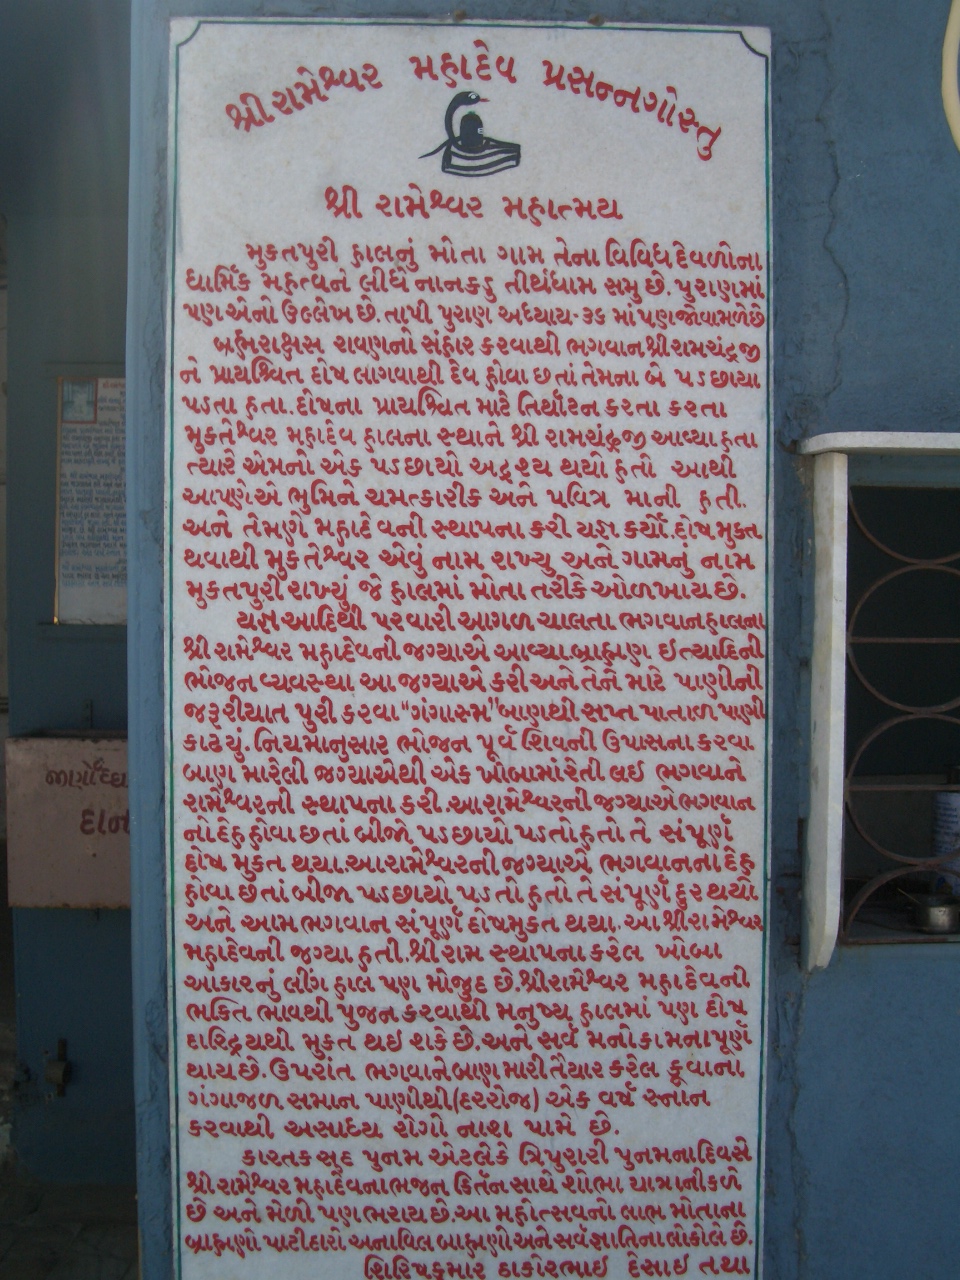 શ્રી રામેશ્વર મહાદેવ પ્રસન્નગોસ્તુ
શ્રી રામેશ્વર મહાત્મય
મુકતપુરી હાલનું મોતા ગામ તેના વિવિધ દેવળોના
ધાર્મિક મહત્વને લીધે નાનકડુ તીર્થધામ સમુ છે. પુરાણમાં
પણ એનો ઉલ્લેખ છે. તાપી પુરાણ અધ્યાય-૩૬ માં પણ જોવામળે છે
બ્રહ્મરાક્ષસ રાવણનો સંહાર કરવાથી ભગવાન શ્રી રામચંદ્રજી
ને પ્રાયશ્ચિત દોષ લાગવાથી દેવ હોવા છતાં તેમના બે પડછાયા
પડતા હતા. દોષના પ્રાયશ્ચિત માટે તિર્થાટન કરતા કરતા
મુકતેશ્વર મહાદેવ હાલના સ્થાને શ્રી રામચંદ્રજી આવ્યા હતા
ત્યારે એમનો એક પડછાયો અદ્રશ્ય થયો હતો આથી
આપણેએ ભુમિને ચમત્કારીક અને પવિત્ર માની હતી.
અને તેમણે મહાદેવની સ્થાપના કરી યજ્ઞ કર્યો. દોષ મુકત
થવાથી મુકતેશ્વર એવું નામ રાખ્યુ અને ગામનું નામ
મુકતપુરી રાખ્યું જે હાલમાં મોતા તરીકે ઓળખાય છે.
યજ્ઞ આદિથી પરવારી આગળ ચાલતા ભગવાન હાલના
શ્રી રામેશ્વર મહાદેવની જગ્યાએ આવ્યા. બ્રાહ્મણ ઈત્યાદિની
ભોજન વ્યવસ્થા આ જગ્યાએ કરી અને તેને માટે પાણીની
જરૂરીયાત પુરી કરવા "ગંગાસ્મ" બાણથી સપ્ત પાતાળ પાણી
કાઢયું. નિયમાનુસાર ભોજન પૂર્વ શિવની ઉપાસના કરવા
બાણ મારેલી જગ્યાએથી એક ખોબામાં રેતી લઈ ભગવાને
રામેશ્વરની સ્થાપના કરી. આ રામેશ્વરની જગ્યાએ ભગવાન
નો દેહ હોવા છતાં બીજો પડછાયો પડતો હતો તે સંપૂર્ણ
દોષ મુકત થયા. આ રામેશ્વરની જગ્યાએ ભગવાનના દેહ
હોવા છતાં બીજા પડછાયો પડતો હતો તે સંપૂર્ણ દુર થયો
અને આમ ભગવાન સંપૂર્ણ દોષમુકત થયા. આ શ્રી રામેશ્વર
મહાદેવની જગ્યા હતી. શ્રી રામ સ્થાપના કરેલ ખોબા
આકારનું લીંગ હાલ પણ મોજુદ છે. શ્રી રામેશ્વર મહાદેવની
ભકિત ભાવથી પુજન કરવાથી મનુષ્ય હાલમાં પણ દોષ
દારિદ્રયથી મુકત થઈ શકે છે. અને સર્વ મનોકામના પૂર્ણ
થાય છે. ઉપરાંત ભગવાને બાણ મારી તૈયાર કરેલ કૂવાના
ગંગાજળ સમાન પાણીથી (દરરોજ) એક વર્ષ સ્નાન
કરવાથી અસાધ્ય રોગો નાશ પામે છે.
કારતક સુદ પુનમ એટલેકે ત્રિપુરારી પુનમના દિવસે
શ્રી રામેશ્વર મહાદેવના ભજન કિર્તન સાથે શોભા યાત્રા નીકળે
છે અને મેળો પણ ભરાય છે. આ મહોત્સવનો લાભ મોતાના
બ્રાહ્મણો પાટીદારો અનાવિલ બ્રાહ્મણો અને સર્વ જ્ઞાતિના લોકો લે છે.
શિરિષકુમાર ઠાકોરભાઈ દેસાઈ તથા
દાન